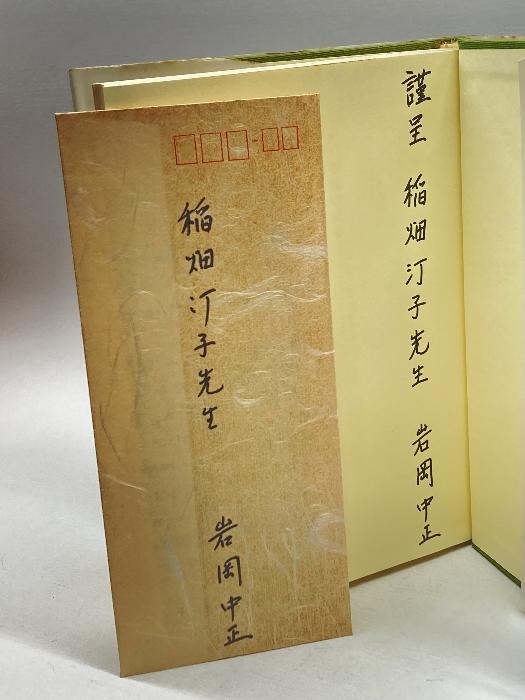 謹呈 稲畑汀子先生 岩岡中正
稲畑汀子先生
岩岡中正